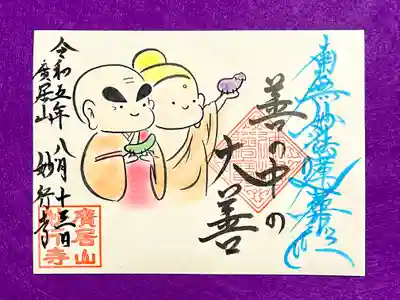 南無妙法蓮華経
善の中の
大善
令和五年八月十三日
廣居山 妙行寺
廣居山
妙行寺